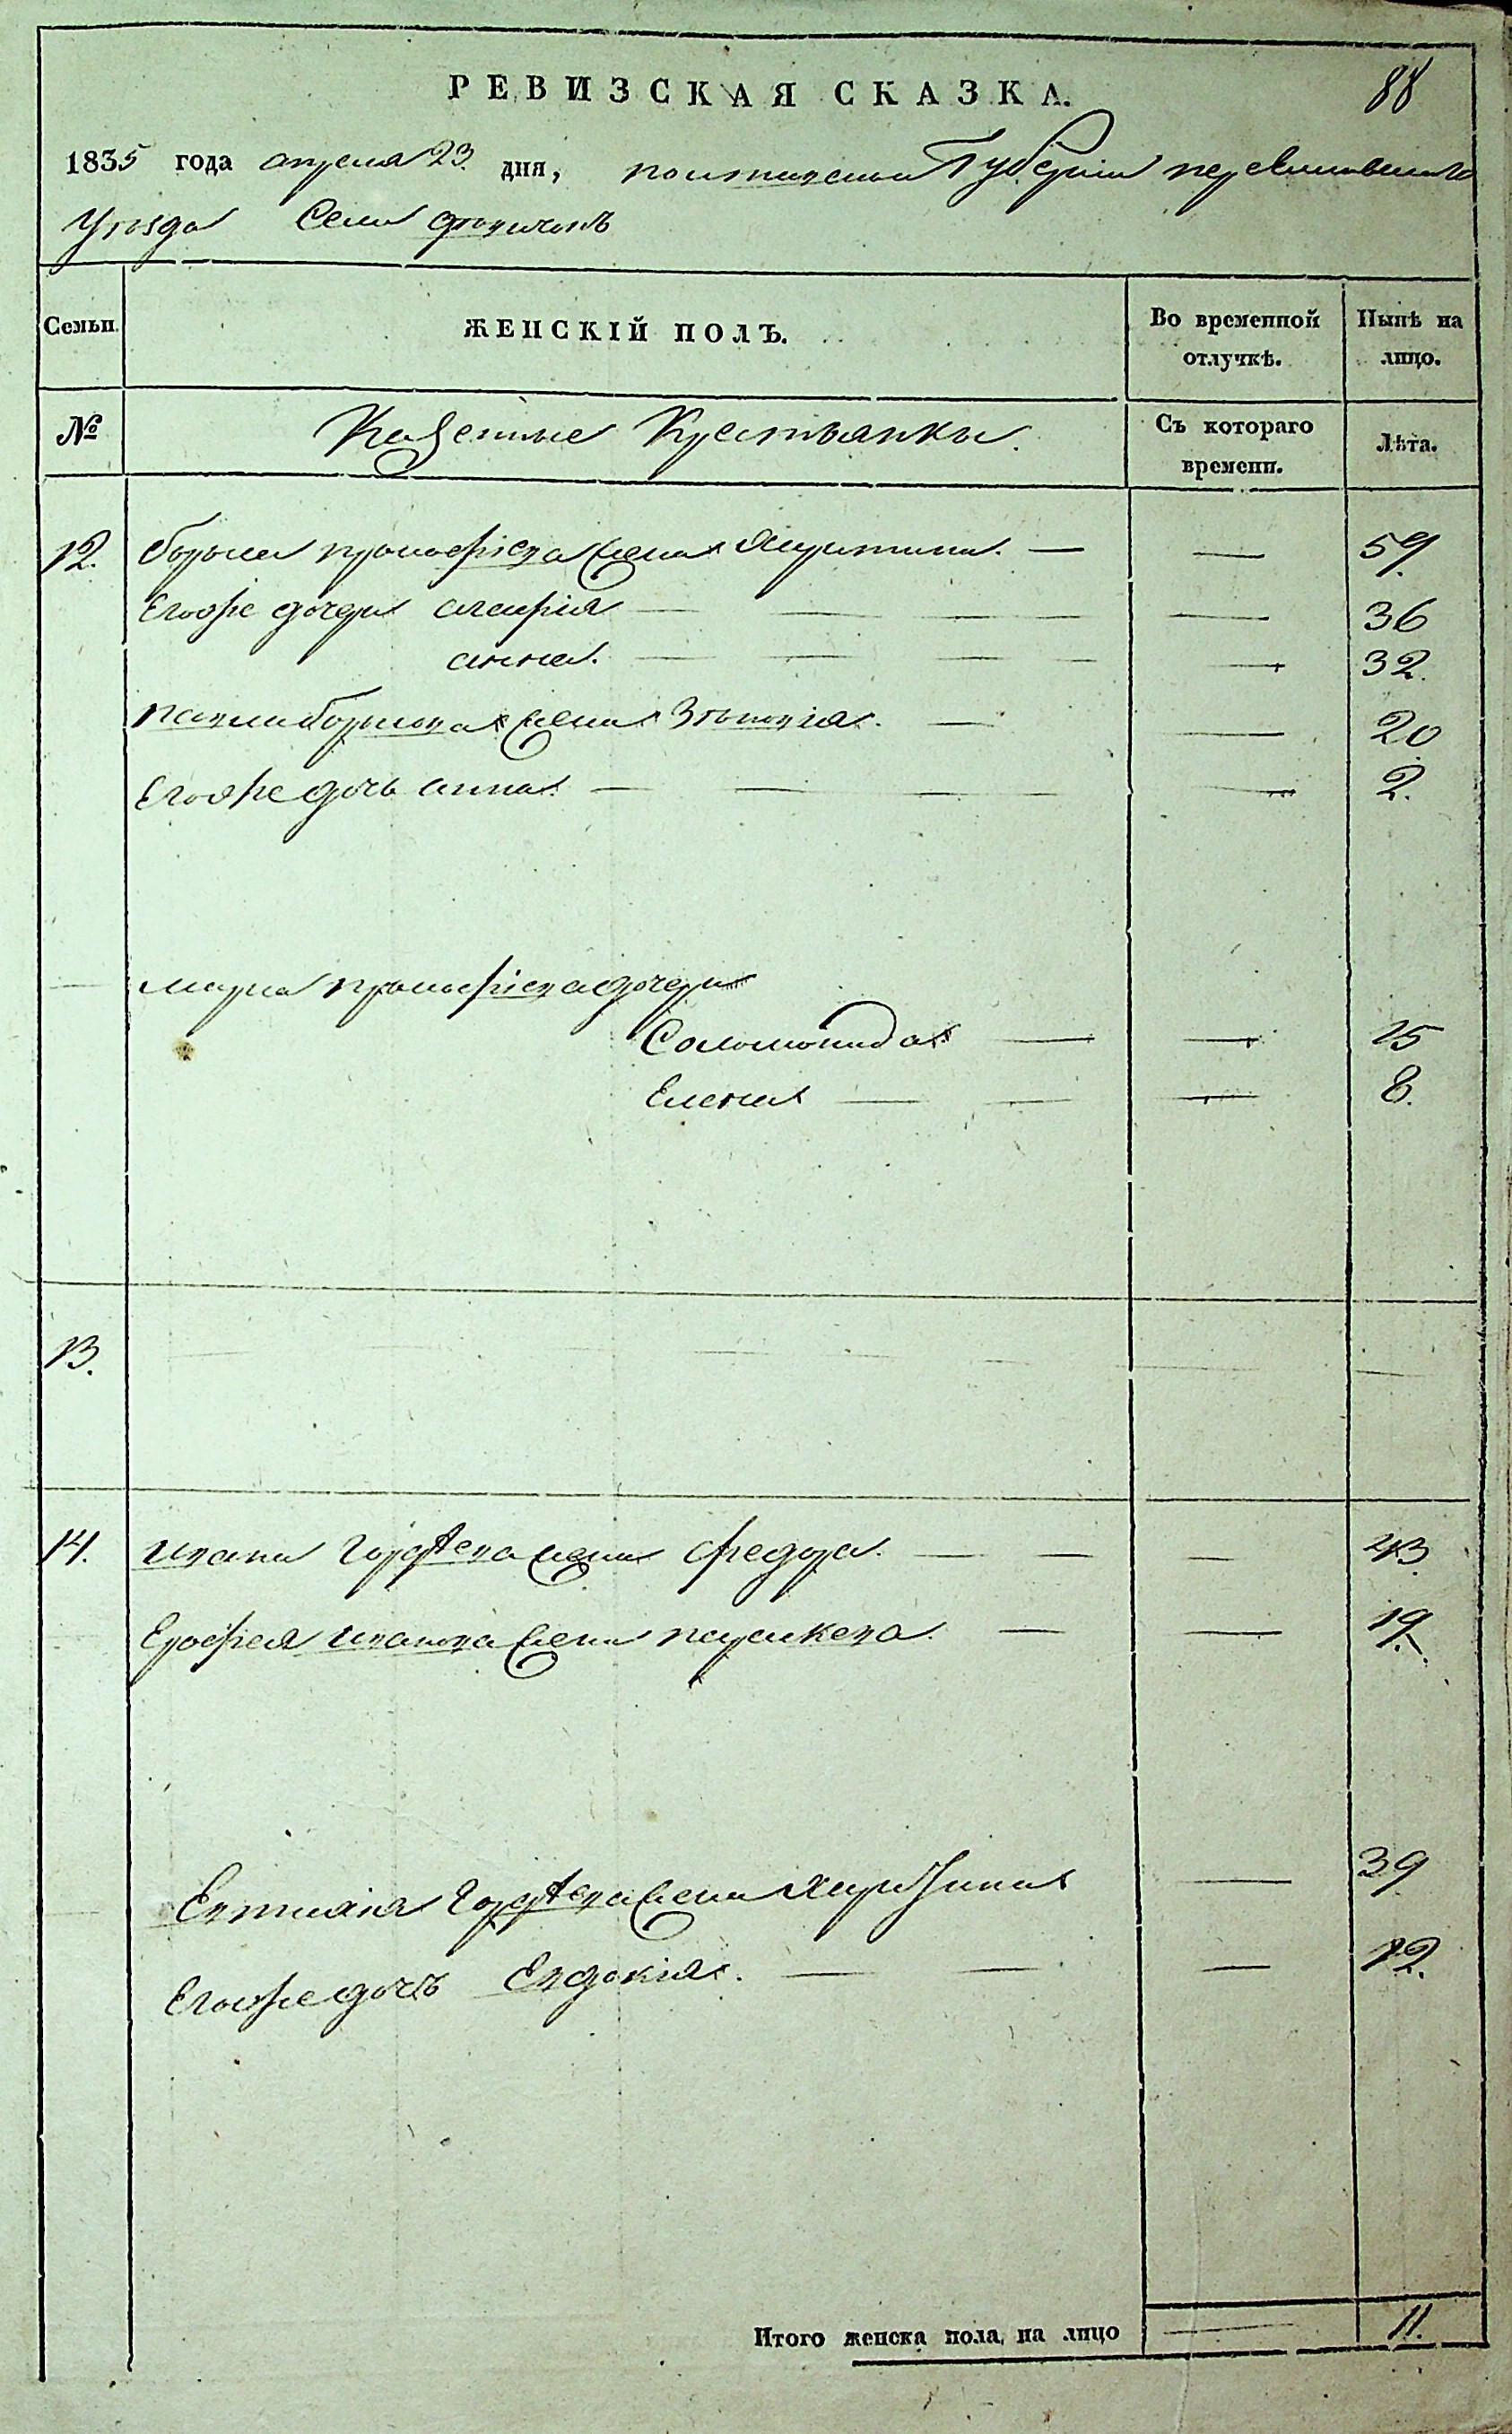 РЕВИЗСКАЯ СКАЗКА.
88
1835 года апреля 23 дня, полтавской Губернiи переяславскаго
Уѣзда Села
Семьи. ЖЕНСКІЙ ПОЛЪ. Во временной отлучкѣ. Нынѣ на лицо.
№ Казенные Крестьянки. Съ котораго времени. Лѣта.
12. бориса прокофiева жена Христина. — — 59.
Егоже дочери — — 36
анна. — — 32.
павла борисова жена Зѣновiя. — — 20
Егоже дочь анна. — — 2.
марка прокофiева дочери
Соломонида — — 15
Елена — — 8.
13.
14. ивана гордѣева жена федора. — — 43.
Ерофея иванова жена параскева. — — 19.
гордѣева жена Харитина — 39
Егоже дочь Евдокiя. — — 12.
Итого женска пола, на лицо — 11.